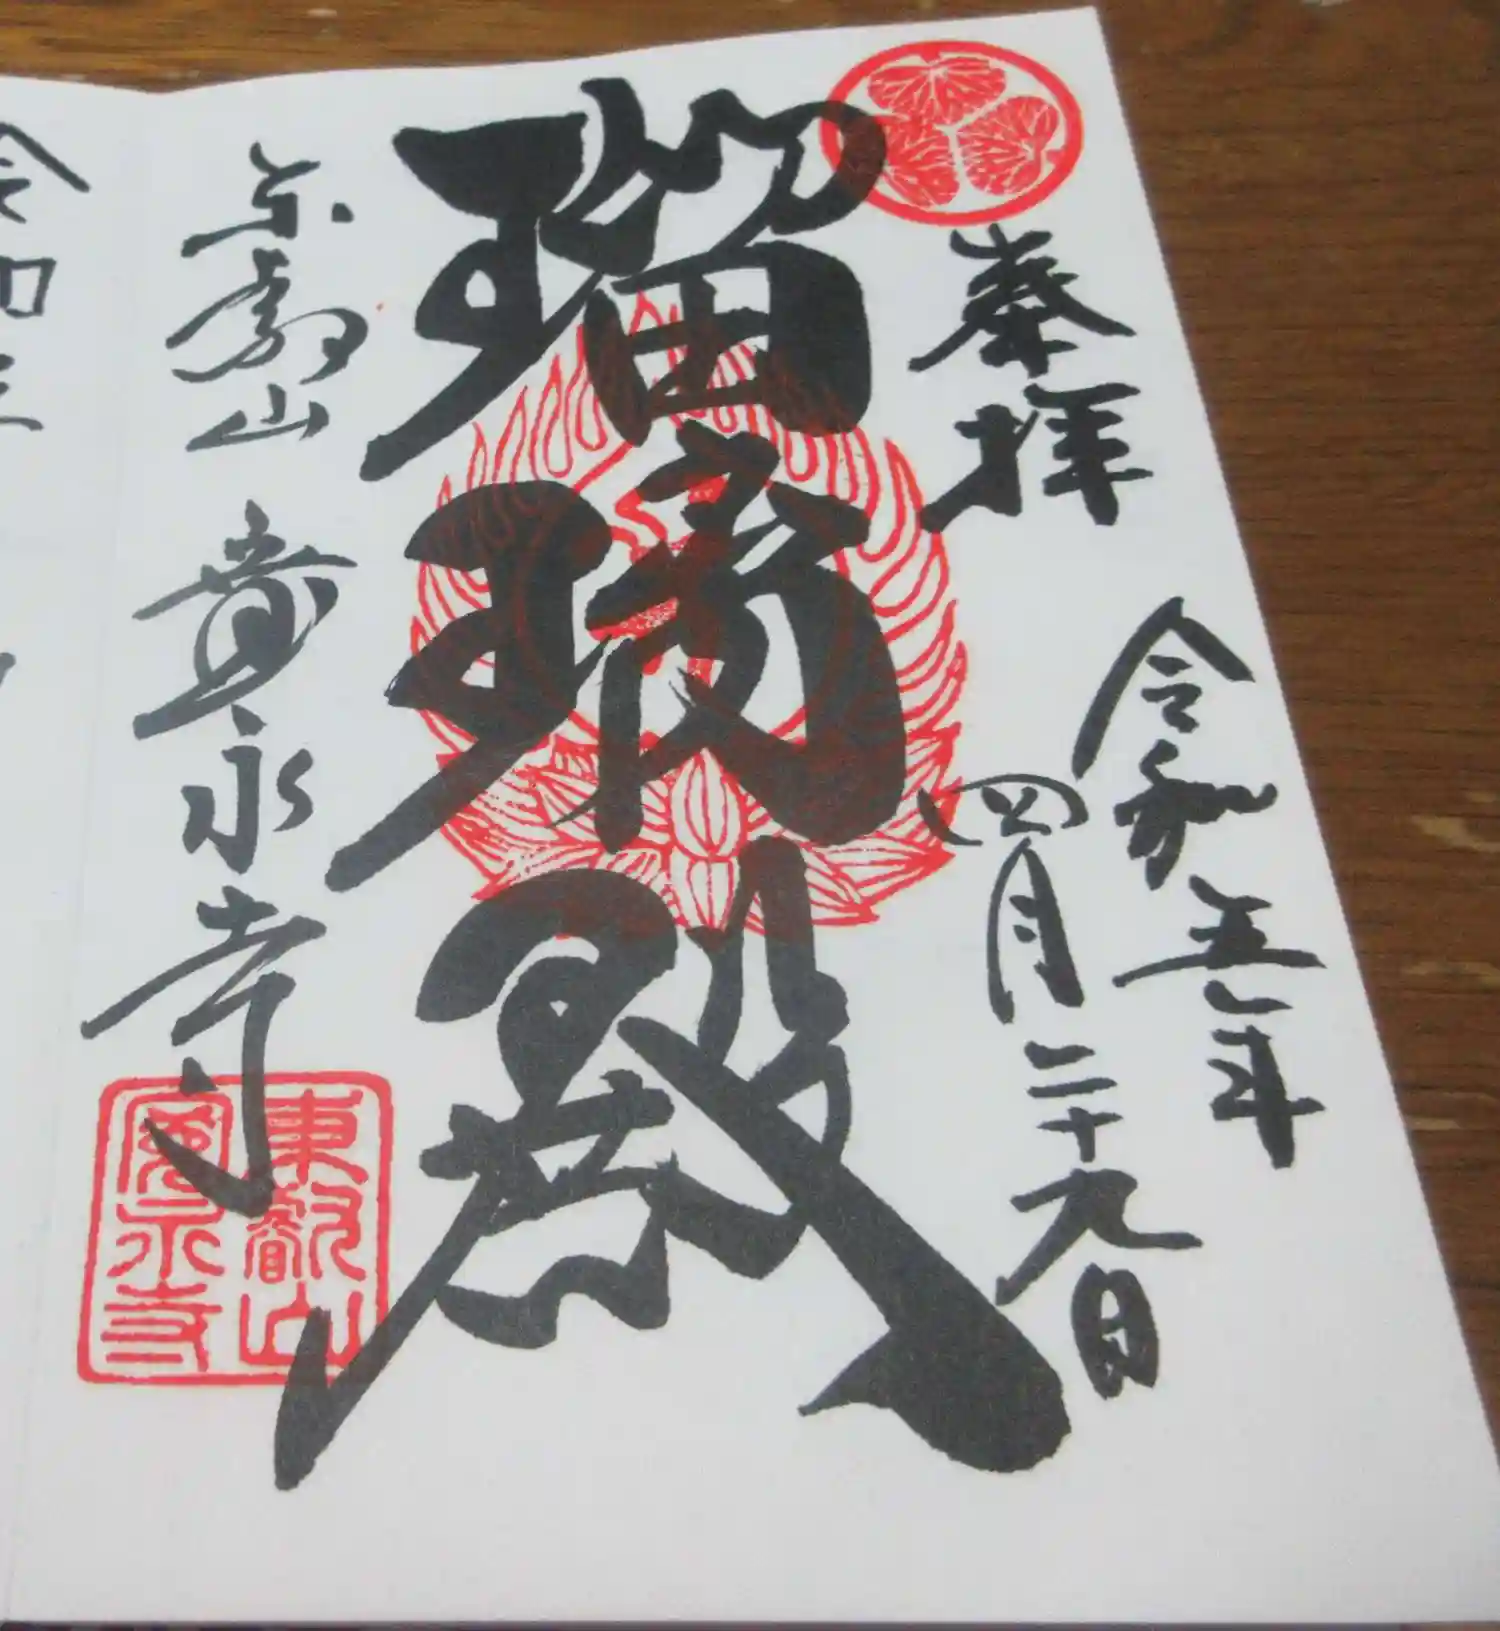 奉拝
令和五年
四月二十九日
瑠璃殿
東叡山
寛永寺
東叡山
寛永寺
令和三